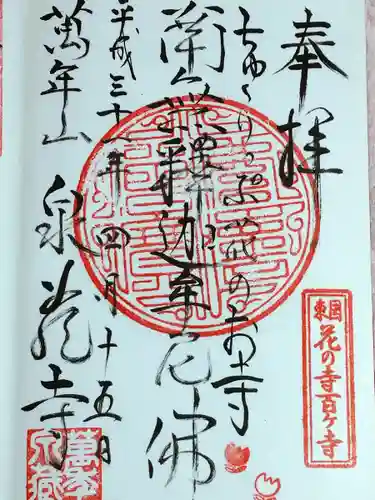 奉拝
ちゅうりっぷ花のお寺
南無釋迦牟尼佛
平成三十一年四月十五日
萬年山 泉
寺
東国花の寺百ヶ寺